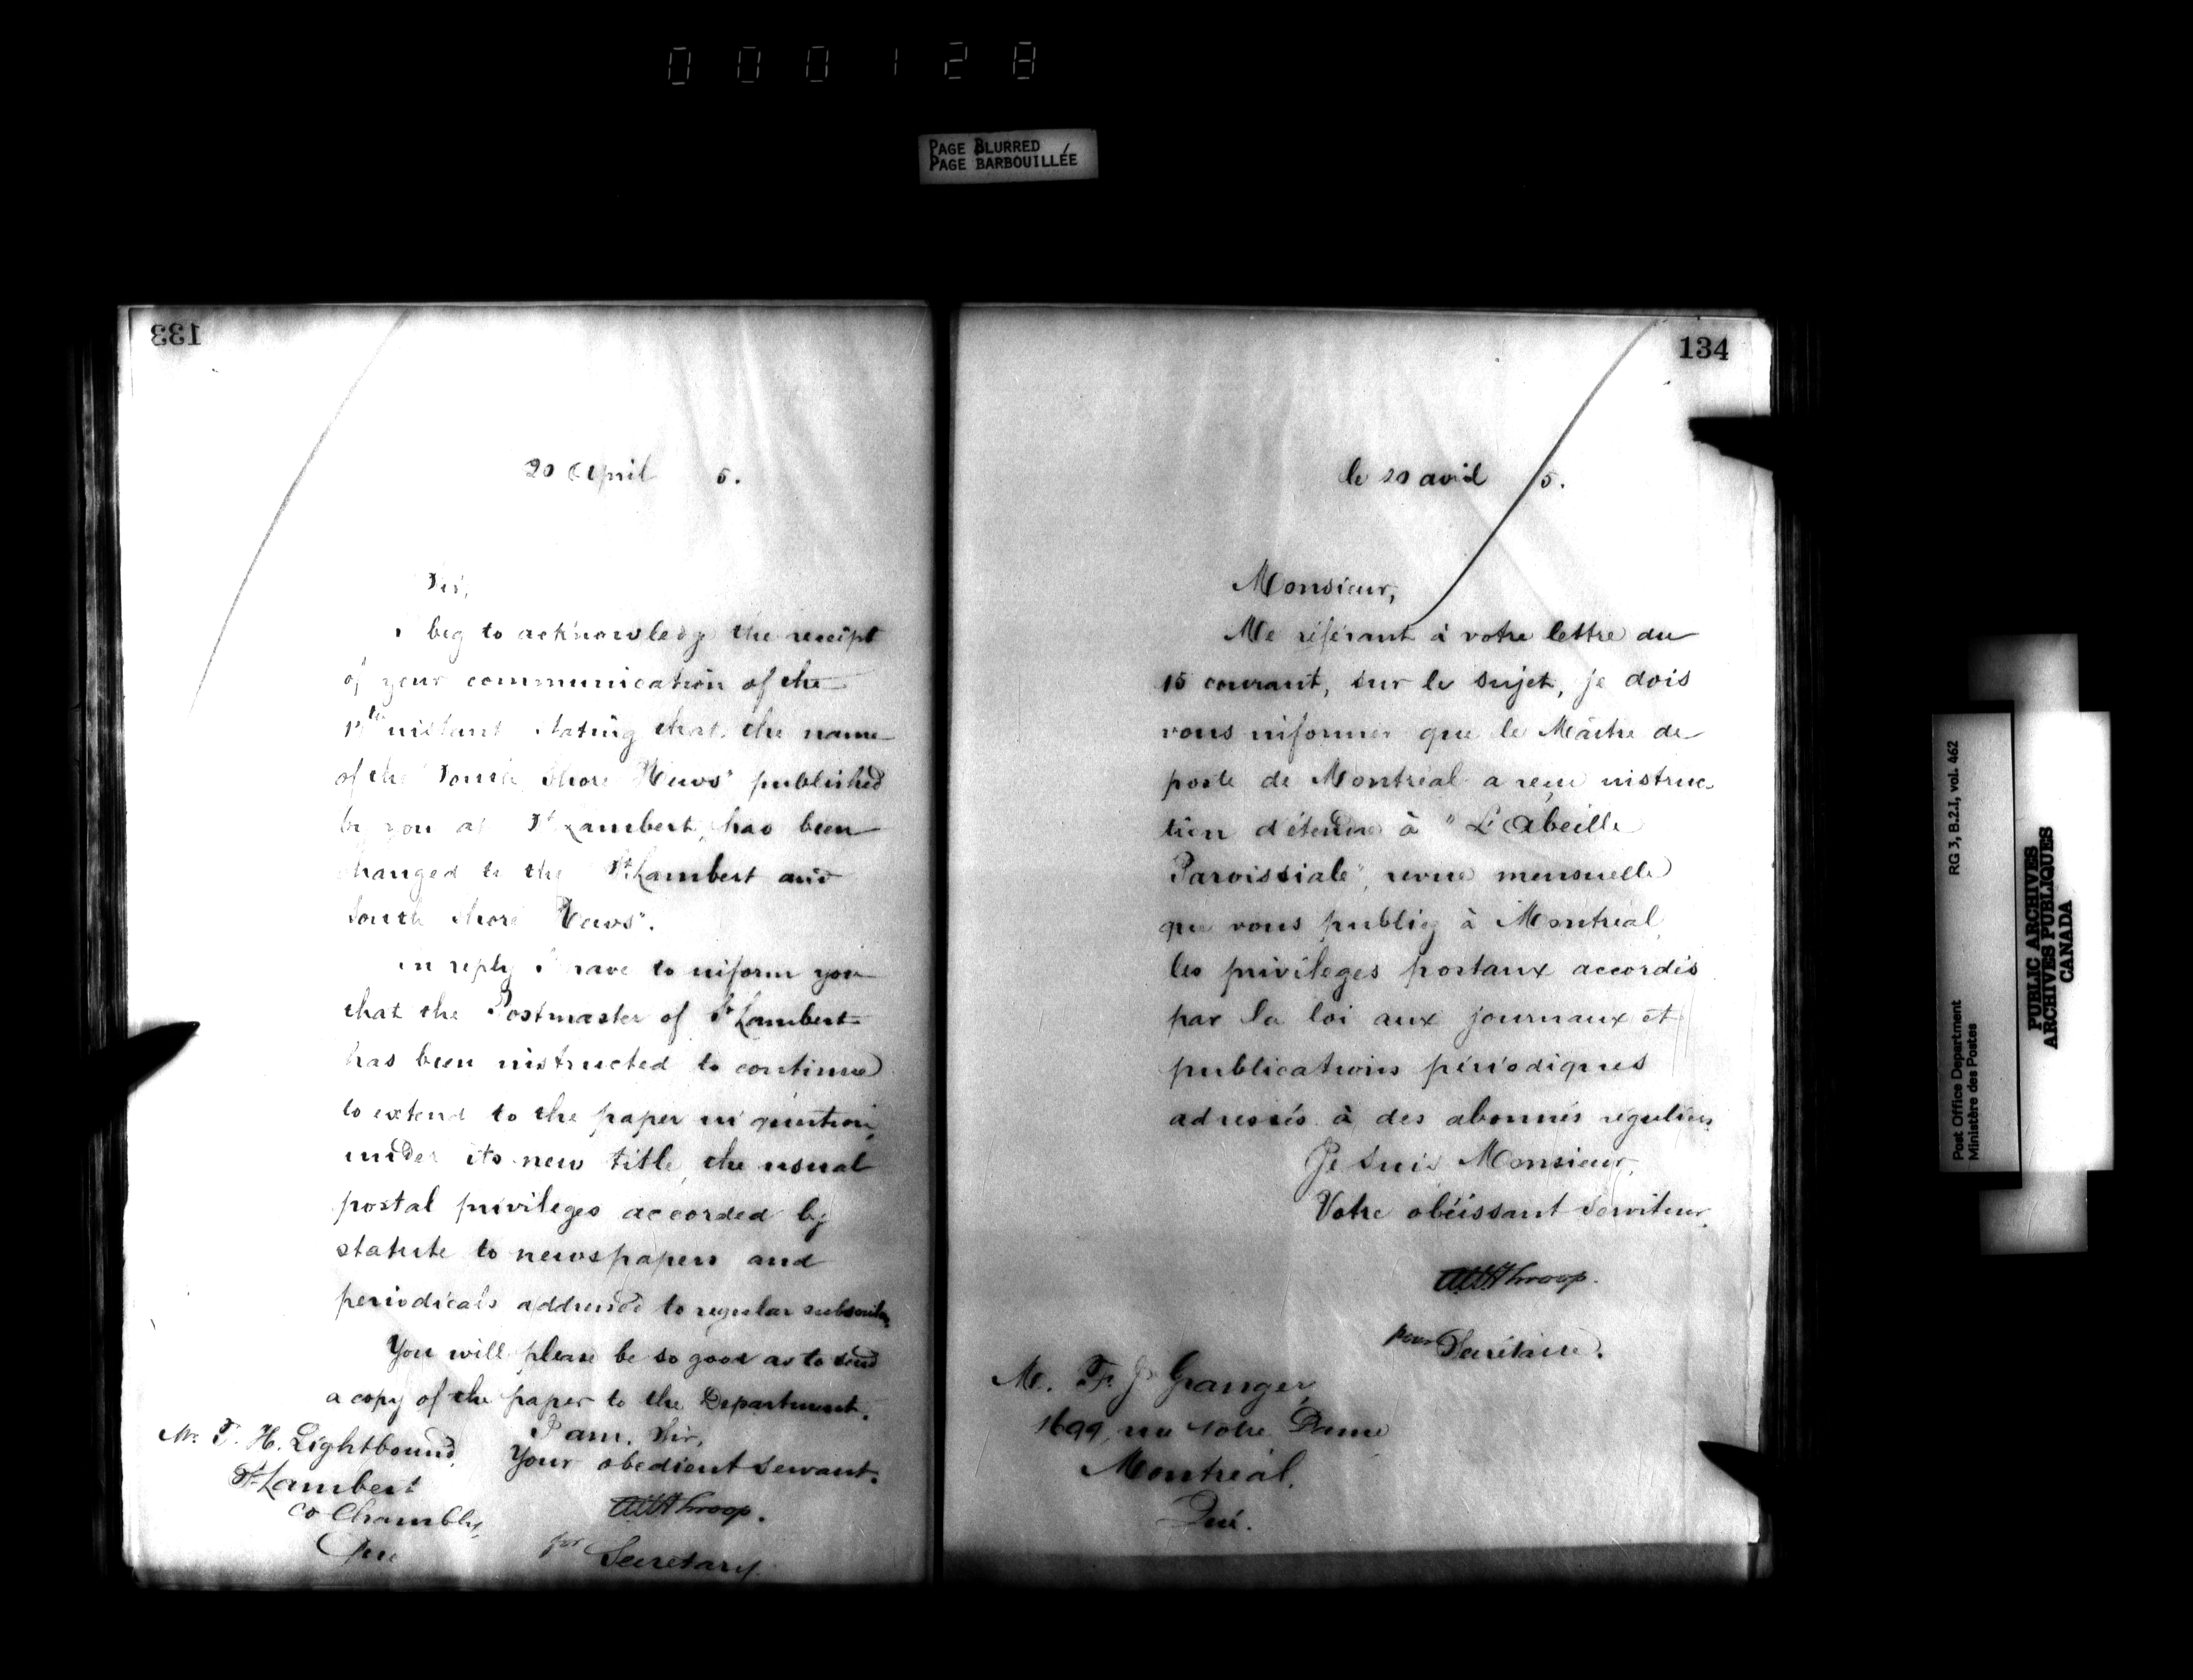 000128
PAGE BLURRED
PAGE BARBOUILLÉE
133
20 April 5.
Sir,
I beg to acknowledge the receipt
of your communication of the
instant stating that the name
of the "South Shore News" published
by you at St Lambert, has been
changed to the "St. Lambert and
South Shore News".
In reply I have to inform you
that the Postmaster of St Lambert
has been instructed to continue
to extend to the paper in question,
under its new title, the usual
postal privileges accorded by
statute to newspapers and
periodicals addressed to regular subscribers.
You will please be so good as to send
a copy of the paper to the Department.
I am, Sir,
Your obedient servant.
for Secretary.
Mr. T. H. Lightbound,
St Lambert
Co Chambly,
Que
134
le 20 avril 5.
Monsieur,
Me référant à votre lettre du
15 courant, sur le sujet, je dois
vous informer que le Maître de
poste de Montréal a reçu instruc-
tion d'étendre à "L'Abeille
Paroissiale", revue mensuelle
que vous publiez à Montréal,
les privilèges postaux accordés
par la loi aux journaux et
publications périodiques
adressés à des abonnés réguliers.
Je suis Monsieur,
Votre obéissant serviteur.
pour Secrétaire.
M. F. J. Granger,
1699, rue Notre Dame
Montréal,
Qué.
RG 3, B.2.I, vol. 462
Post Office Department
Ministère des Postes
PUBLIC ARCHIVES
ARCHIVES PUBLIQUES
CANADA